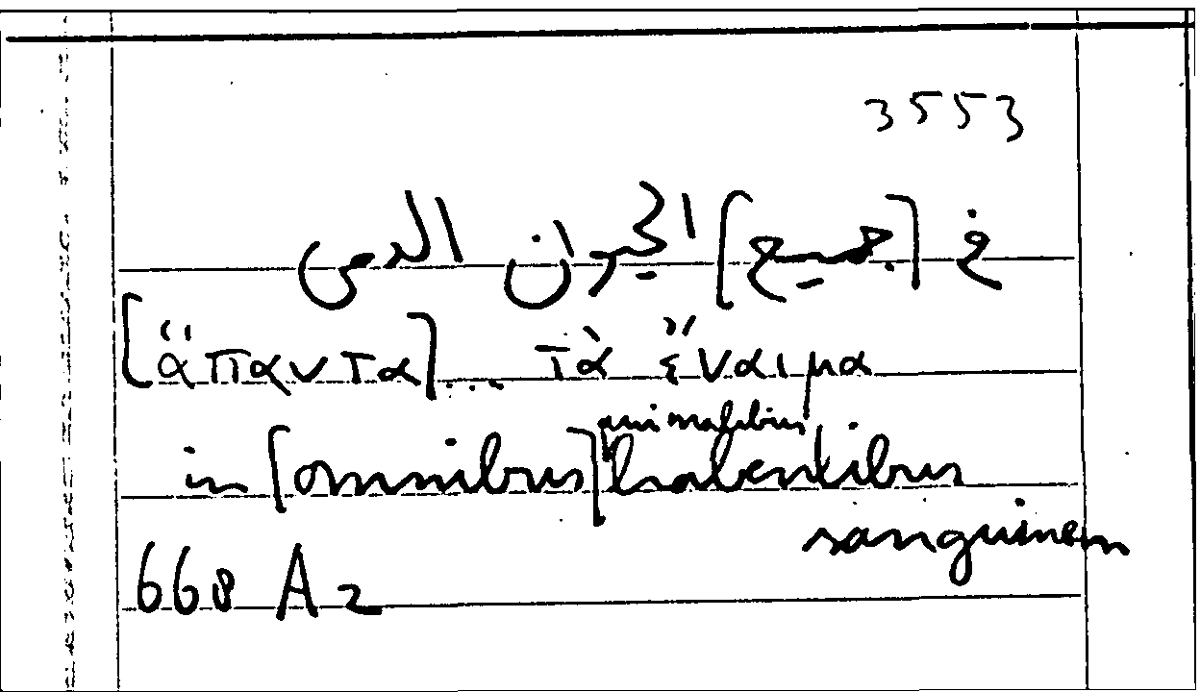 3553
في [جميع] الحيوان الدمى
[ἅπαντα]... τὰ ἔναιμα
in [omnibus] animalibus habentibus
sanguinem
668 A 2